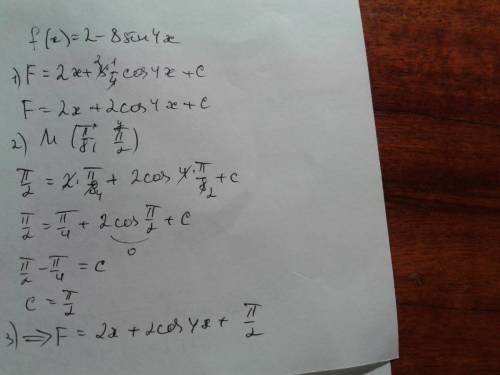 f(x)=2-8sin4x
1) F=2x+8·1/4 cos4x+c
F=2x+2cos4x+c
2) M (π/8; π/2)
π/2=2·π/8+2cos4·π/8+c
π/2=π/4+2cos π/2+c
0
π/2-π/4=c
c=π/2
3) ⟹F=2x+2cos4x+π/2